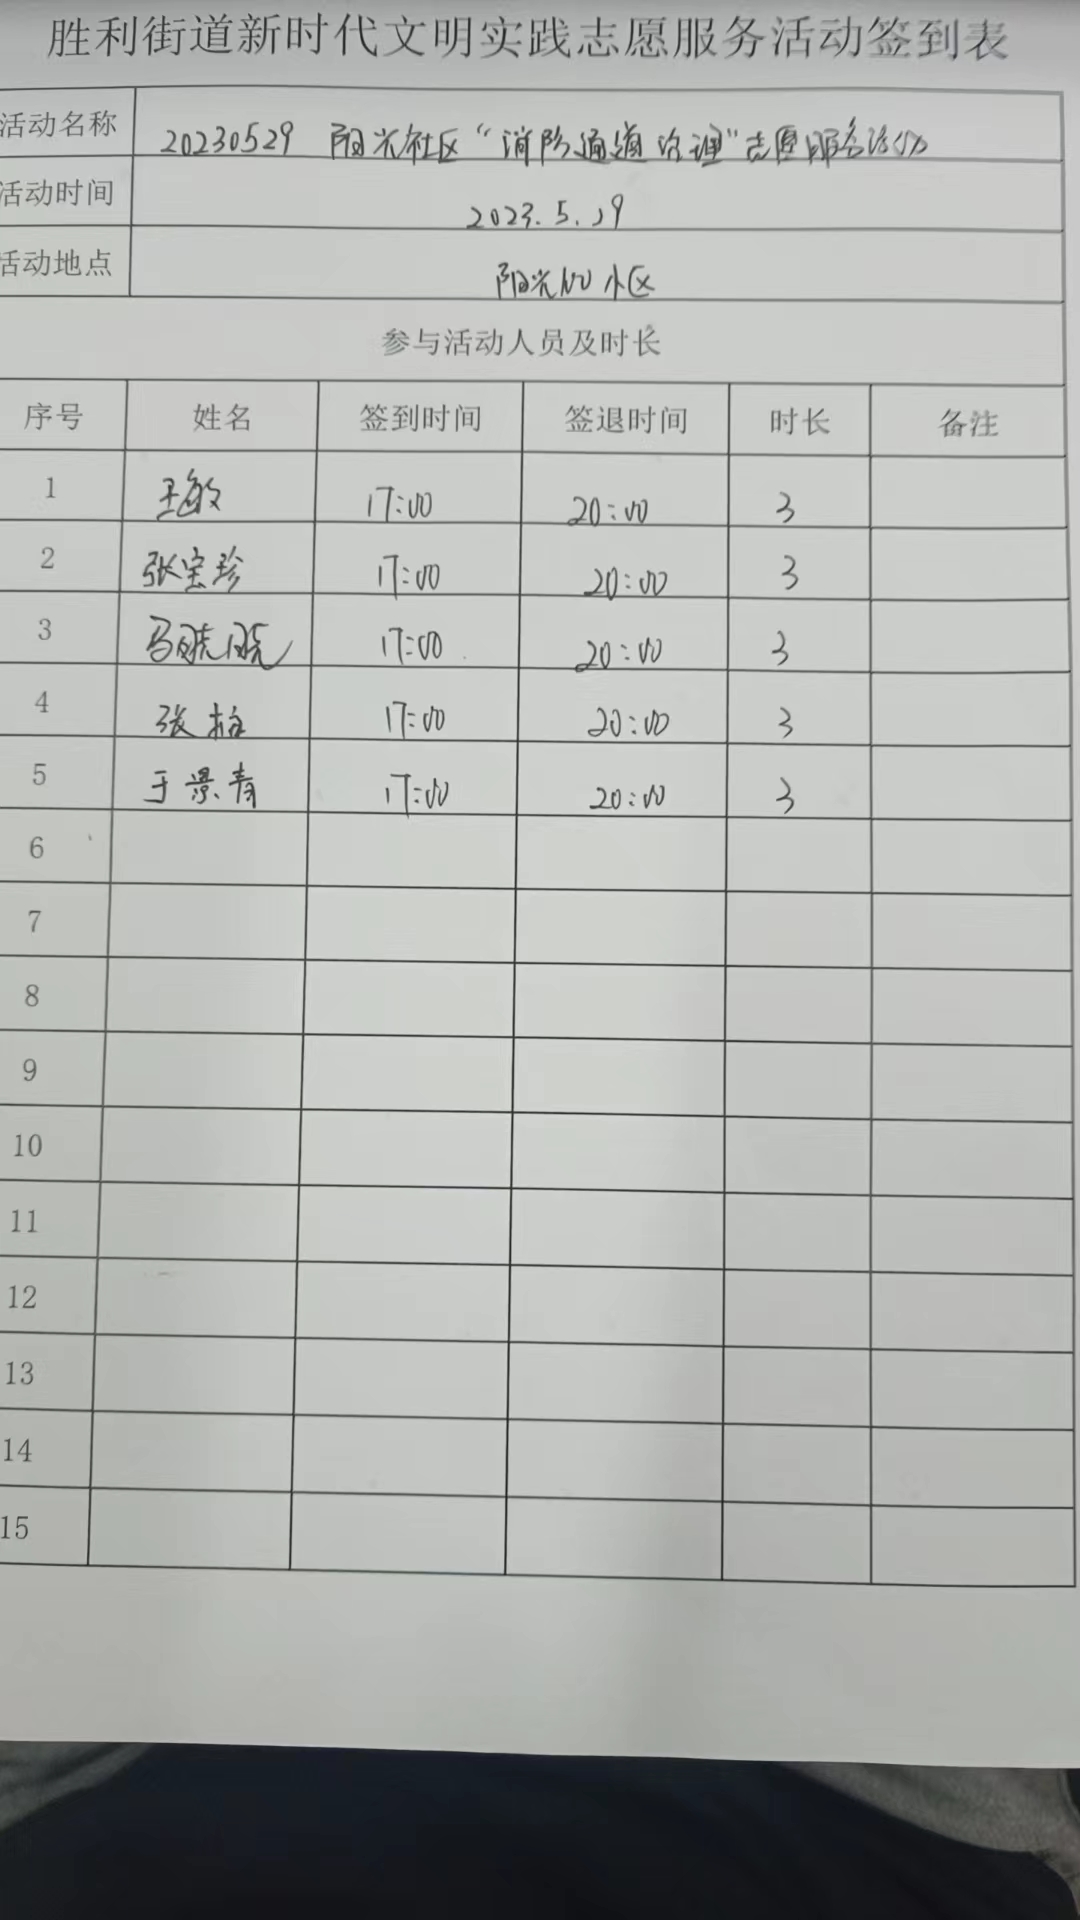 胜利街道新时代文明实践志愿服务活动签到表
活动名称 20230529 阳光社区“消防通道治理”志愿服务活动
活动时间 2023.5.29
活动地点 阳光100小区
参与活动人员及时长
序号 姓名 签到时间 签退时间 时长 备注
1 王敏 17:00 20:00 3
2 张宝珍 17:00 20:00 3
3 马晓晓 17:00 20:00 3
4 张柏 17:00 20:00 3
5 于景青 17:00 20:00 3
6
7
8
9
10
11
12
13
14
15